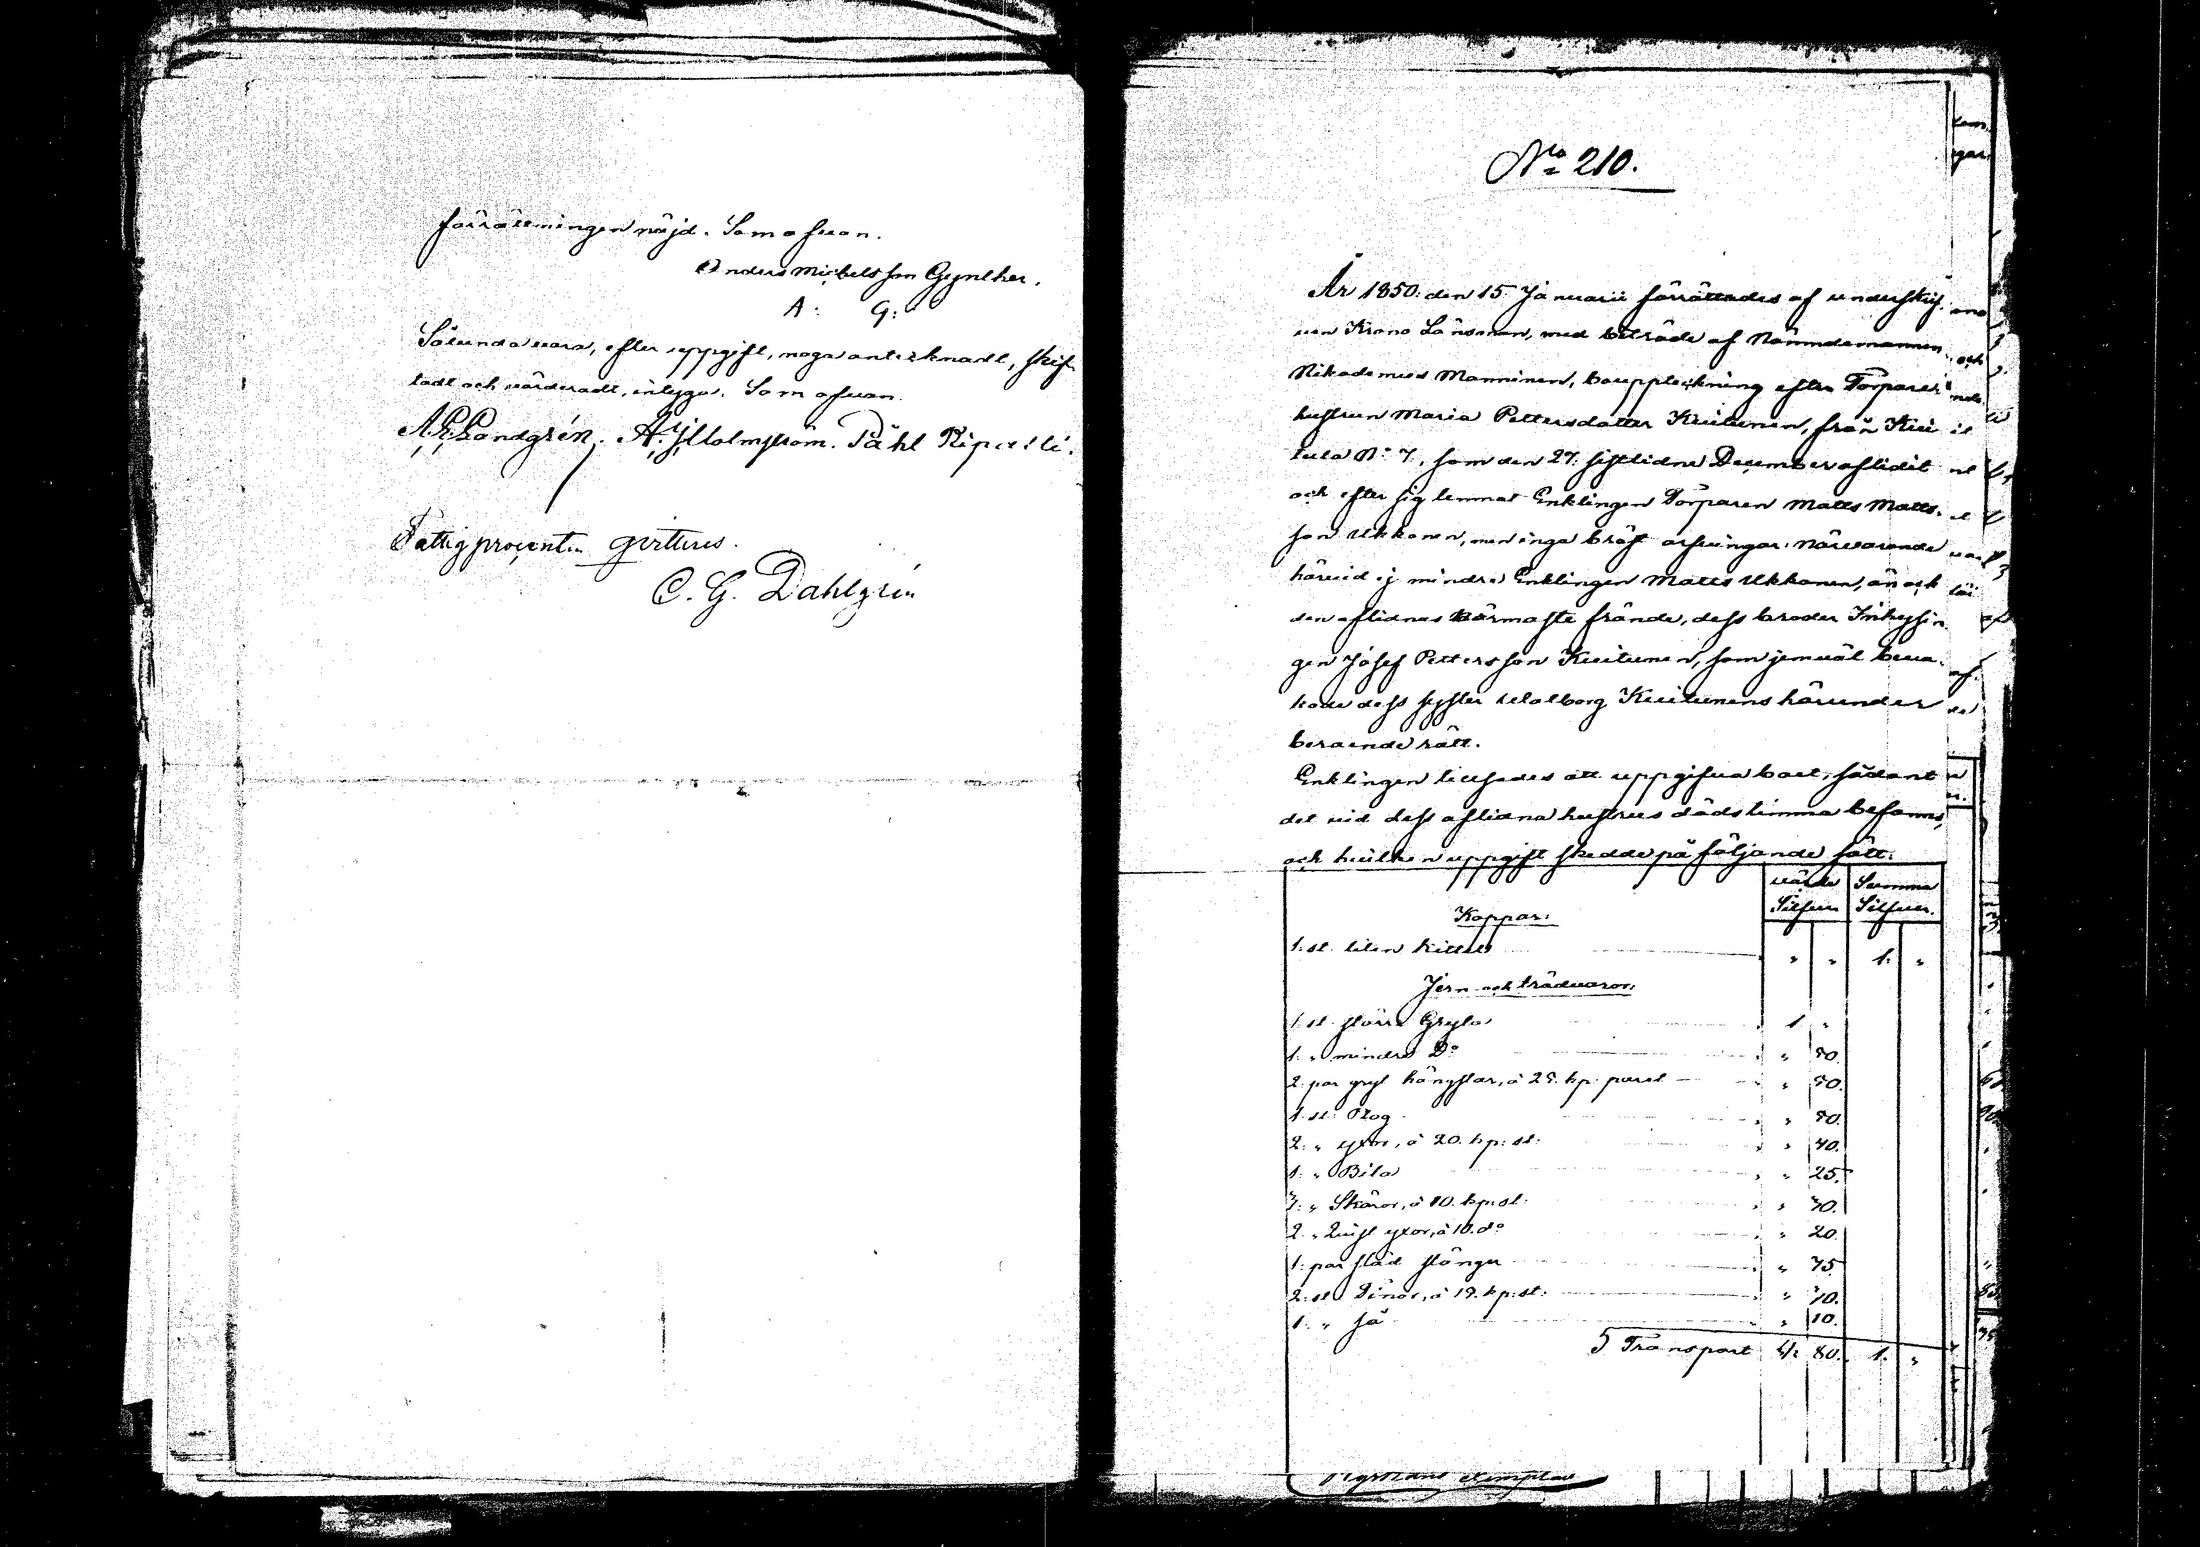 förrättningen nöjd. Som ofvan.
Anders Michelsson Gynther.
A: G:
Sålunda vara, efter uppgift, noga antecknadt, skif-
tadt och värderadt, intyga. Som ofvan.
A. E. Landgrén. A. J. Holmström. Påhl Ripatti.
Fattigprocenten qvitteras.
C. G. Dahlgrén
No 210.
År 1850. den 15 Januarii förrättades af underskrif-
ven Krono Länsman, med biträde af Nämndemannen
Nikodemus Manninen, bouppteckning efter Torpare
hustrun Maria Pettersdotter Kuitunen, från Kui
tula No 7, som den 27. sistlidne December aflidit
och efter sig lemnat Enklingen Torparen Matts Matts-
son Ukkonen, men inga bröst arfvingar. Närvarande
härvid ej mindre Enklingen Matts Ukkonen, än ock
den aflidnas närmaste frände, dess broder Inhysin
gen Josef Pettersson Kuitunen, som jemväl beva-
kade dess syster Walborg Kuitunens härunder
beroende rätt.
Enklingen tillsades att uppgifva boet, sådant
det vid dess aflidna hustrus dödstimma befanns,
och hvilken uppgift skedde på följande sätt:
värde Summa
Silfver Silfver.
Koppar:
1. st. liten kittel " " 1. "
Jern och trädvaror.
1. st. större Gryta 1 "
1. " mindre Do " 80.
2. par gryt hängslar, à 25. kp. paret " 50.
1. st. Plog " 80.
2. " yxor, à 20. kp: st. " 40.
1. " Bila " 25.
3. " Skäror, à 10. kp: st. " 30.
2. " Qvist yxor, à 10. do " 20.
1. par släd stänger " 75.
2. st. à kp: st. " 70.
1. " Så " 10.
Transport 80. 1. "
exemplar